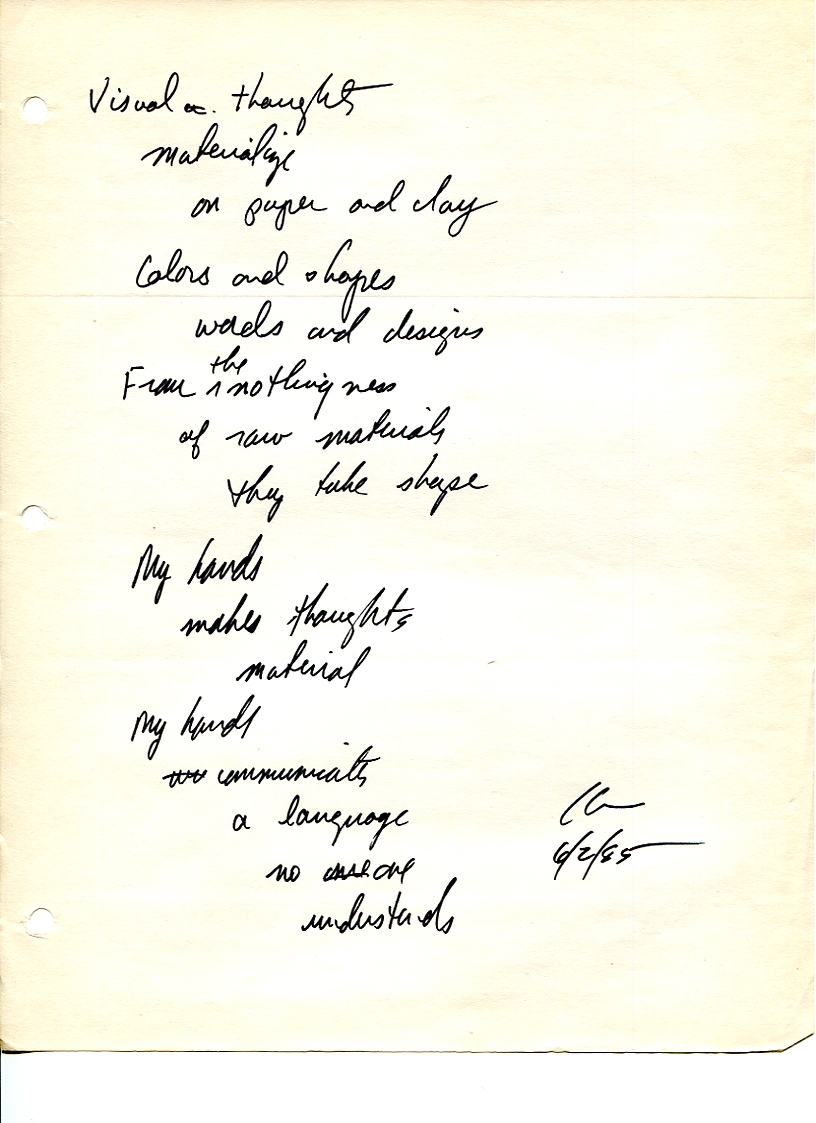 Visual thoughts
materialize
on paper and clay
Colors and shapes
words and designs
From the nothingness
of raw materials
they take shape
My hands
makes thoughts
material
My hands
communicate
a language
no one
understands
6/2/85